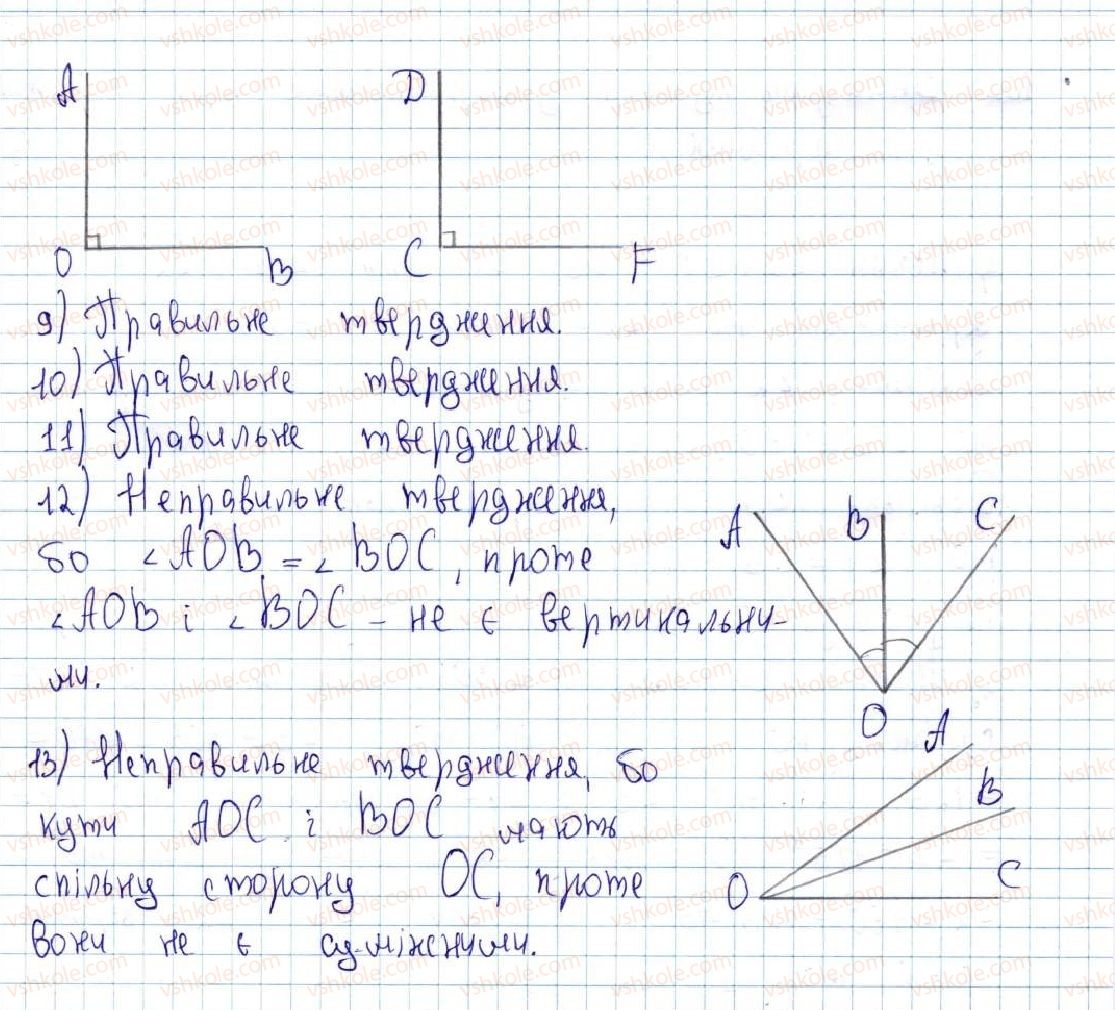 A D
O B C F
9) Правильне твердження.
10) Правильне твердження.
11) Правильне твердження.
12) Неправильне твердження,
бо ∠AOB = ∠BOC, проте
∠AOB і ∠BOC - не є вертикальни-
ми.
A B C
O
13) Неправильне твердження, бо
кути AOC і BOC мають
спільну сторону OC, проте
вони не є суміжними.
A
B
O C
vshkole.com